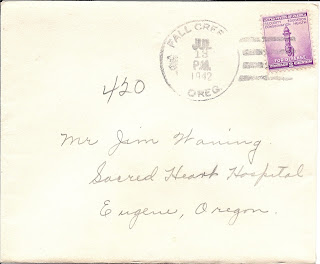 FALL CREE
JUL
18
P.M.
1942
OREG.
420
Mr Jim Waning
Sacred Heart Hospital
Eugene, Oregon.